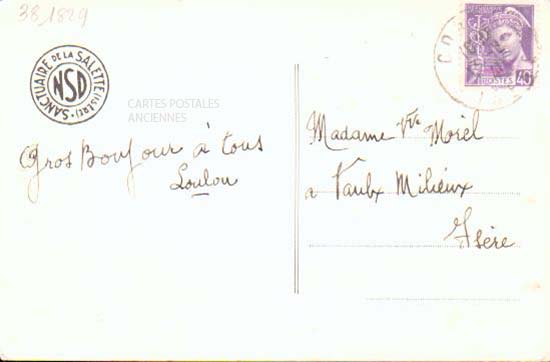 38_1829
SANCTUAIRE DE LA SALETTE (ISERE)
NSD
CARTES POSTALES
ANCIENNES
Gros Bonjour à tous
Loulou
Madame Vve Morel
a Vaulx Milieux
Isère
POSTES
40